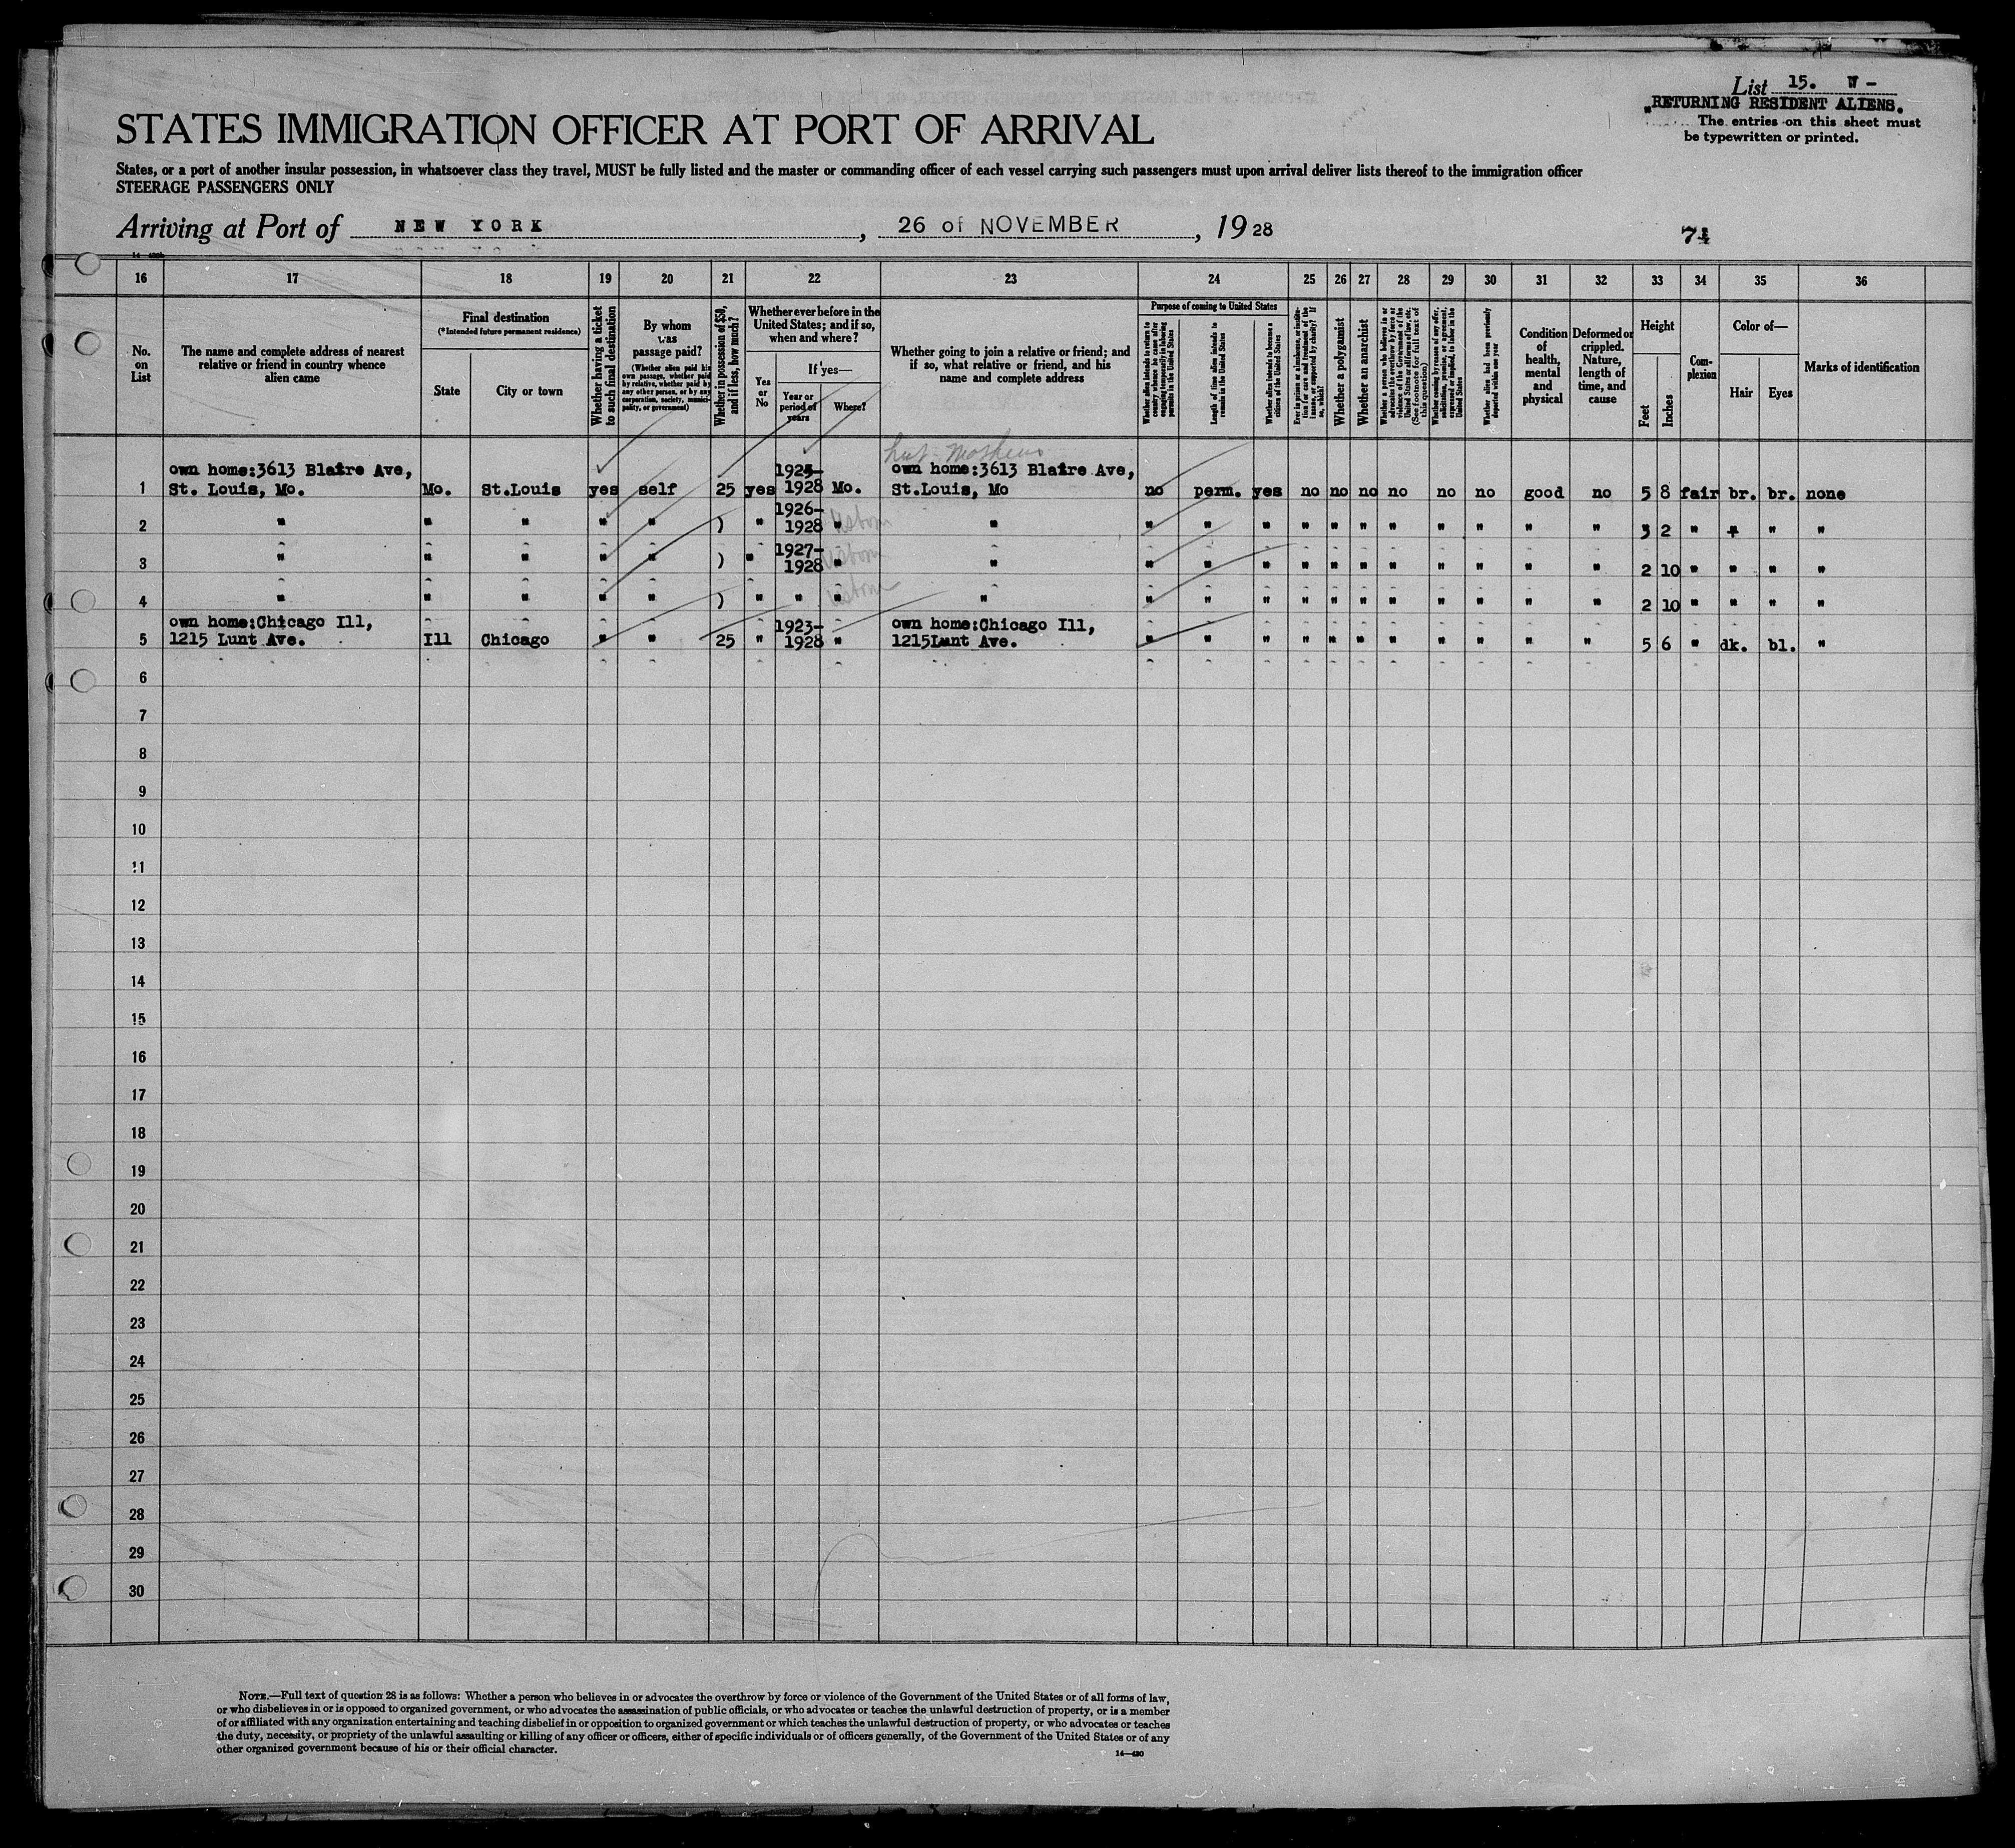 List 15. W-
"RETURNING RESIDENT ALIENS.
The entries on this sheet must
be typewritten or printed.
STATES IMMIGRATION OFFICER AT PORT OF ARRIVAL
States, or a port of another insular possession, in whatsoever class they travel, MUST be fully listed and the master or commanding officer of each vessel carrying such passengers must upon arrival deliver lists thereof to the immigration officer
STEERAGE PASSENGERS ONLY
Arriving at Port of NEW YORK, 26 of NOVEMBER, 19 28
16 17 18 19 20 21 22 23 24 25 26 27 28 29 30 31 32 33 34 35 36
No.
on
List
The name and complete address of nearest
relative or friend in country whence
alien came
Final destination
(*Intended future permanent residence)
State
City or town
Whether having a ticket
to such final destination
By whom
was
passage paid?
(Whether alien paid his
own passage, whether paid
by relative, whether paid by
any other person, or by any
corporation, society, munici-
pality, or government)
Whether in possession of $50,
and if less, how much?
Whether ever before in the
United States; and if so,
when and where?
Yes
or
No
If yes—
Year or
period of
years
Where?
Whether going to join a relative or friend; and
if so, what relative or friend, and his
name and complete address
Purpose of coming to United States
Whether alien intends to return to
country whence he came after
engaging temporarily in laboring
pursuits in the United States
Length of time alien intends to
remain in the United States
Whether alien intends to become a
citizen of the United States
Ever in prison or almshouse, or institu-
tion for care and treatment of the
insane, or supported by charity? If
so, which?
Whether a polygamist
Whether an anarchist
Whether a person who believes in or
advocates the overthrow by force or
violence of the Government of the
United States or all forms of law, etc.
(See footnote for full text of
this question)
Whether coming by reason of any offer,
solicitation, promise, or agreement,
expressed or implied, to labor in the
United States
Whether alien had been previously
deported within one year
Condition
of
health,
mental
and
physical
Deformed or
crippled.
Nature,
length of
time, and
cause
Height
Feet
Inches
Com-
plexion
Color of—
Hair
Eyes
Marks of identification
own home:3613 Blaire Ave, 1925- own home:3613 Blaire Ave,
1 St. Louis, Mo. Mo. St.Louis yes self 25 yes 1928 Mo. St.Louis, Mo no perm. yes no no no no no no good no 5 8 fair br. br. none
1926-
2 " " " " " ) " 1928 " " " " " " " " " " " " " 3 2 " " " "
1927-
3 " " " " " ) " 1928 " " " " " " " " " " " " " 2 10 " " " "
4 " " " " " ) " " " " " " " " " " " " " " " 2 10 " " " "
own home:Chicago Ill, 1923- own home:Chicago Ill,
5 1215 Lunt Ave. Ill Chicago " " 25 " 1928 " 1215Lunt Ave. " " " " " " " " " " " 5 6 " dk. bl. "
6
7
8
9
10
11
12
13
14
15
16
17
18
19
20
21
22
23
24
25
26
27
28
29
30
NOTE.—Full text of question 28 is as follows: Whether a person who believes in or advocates the overthrow by force or violence of the Government of the United States or of all forms of law,
or who disbelieves in or is opposed to organized government, or who advocates the assassination of public officials, or who advocates or teaches the unlawful destruction of property, or is a member
of or affiliated with any organization entertaining and teaching disbelief in or opposition to organized government or which teaches the unlawful destruction of property, or who advocates or teaches
the duty, necessity, or propriety of the unlawful assaulting or killing of any officer or officers, either of specific individuals or of officers generally, of the Government of the United States or of any
other organized government because of his or their official character.
14—430